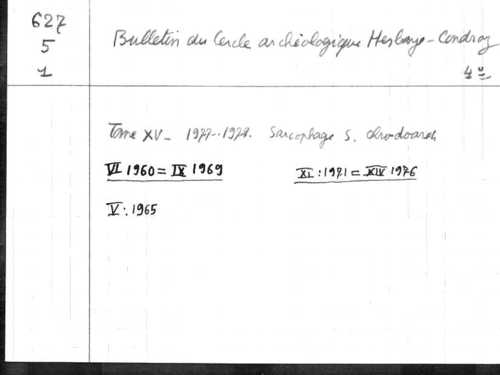 627
5
1
Bulletin du Cercle archéologique Hesbaye-Condroz
4°
Tome XV - 1977-1978. Sarcophage S. Chrodoara
VI 1960 = IX 1969
XI : 1971 = XIV 1976
V : 1965